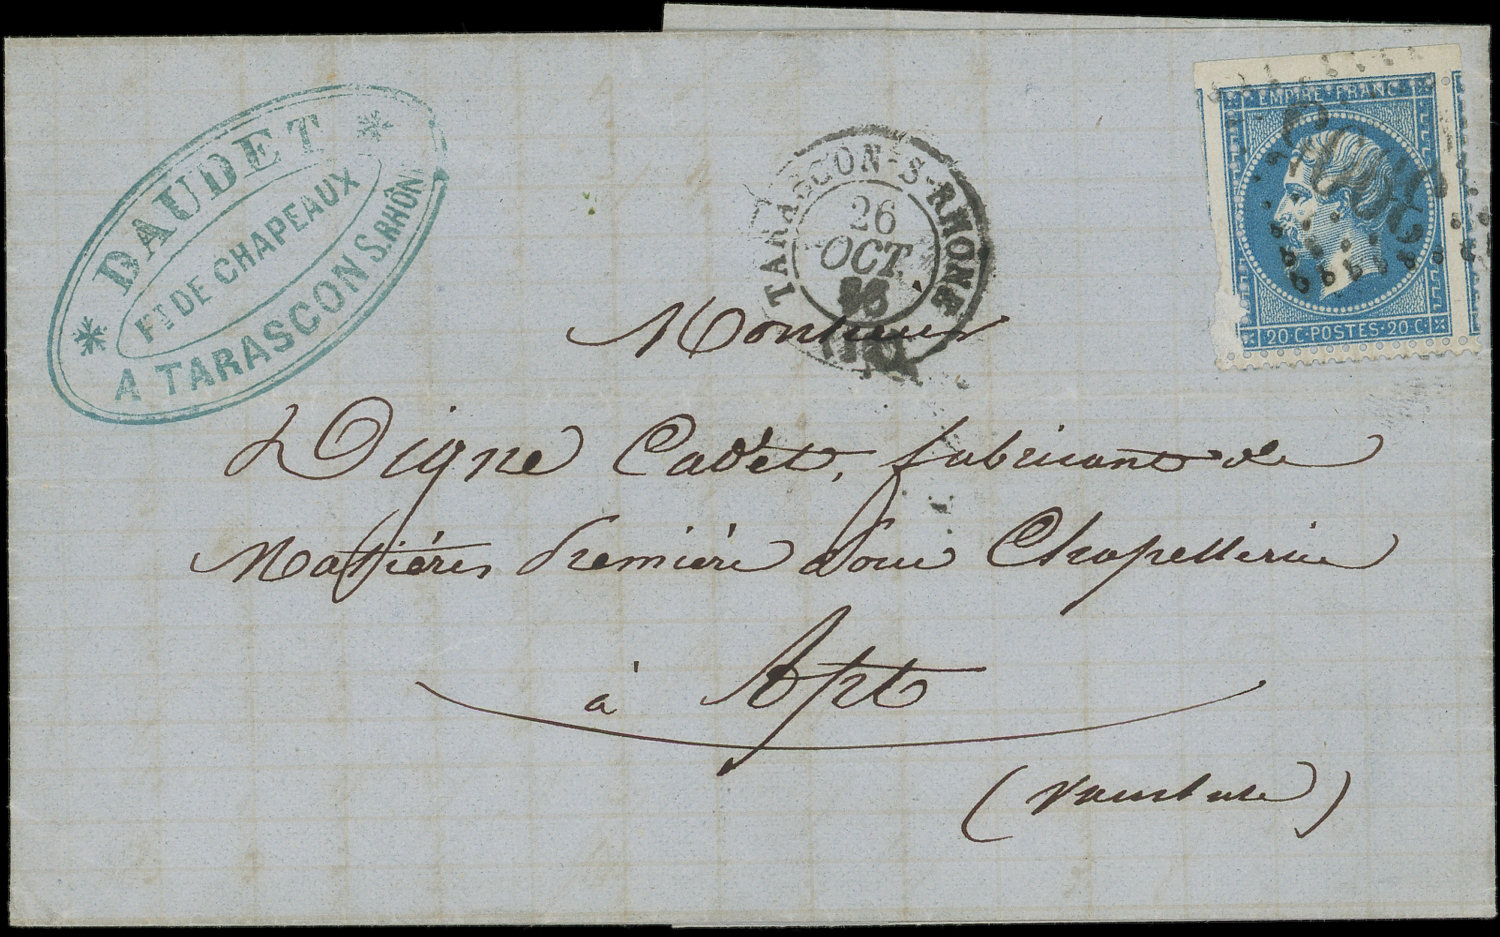 DAUDET
FT DE CHAPEAUX
A TARASCON S. RHÔNE
TARASCON-S-RHONE
26
OCT.
EMPIRE FRANC
20·C·POSTES·20·C
Monsieur
Digne Cadet, fabricant de
Matières Première pour Chapellerie
à Apt
(Vaucluse)